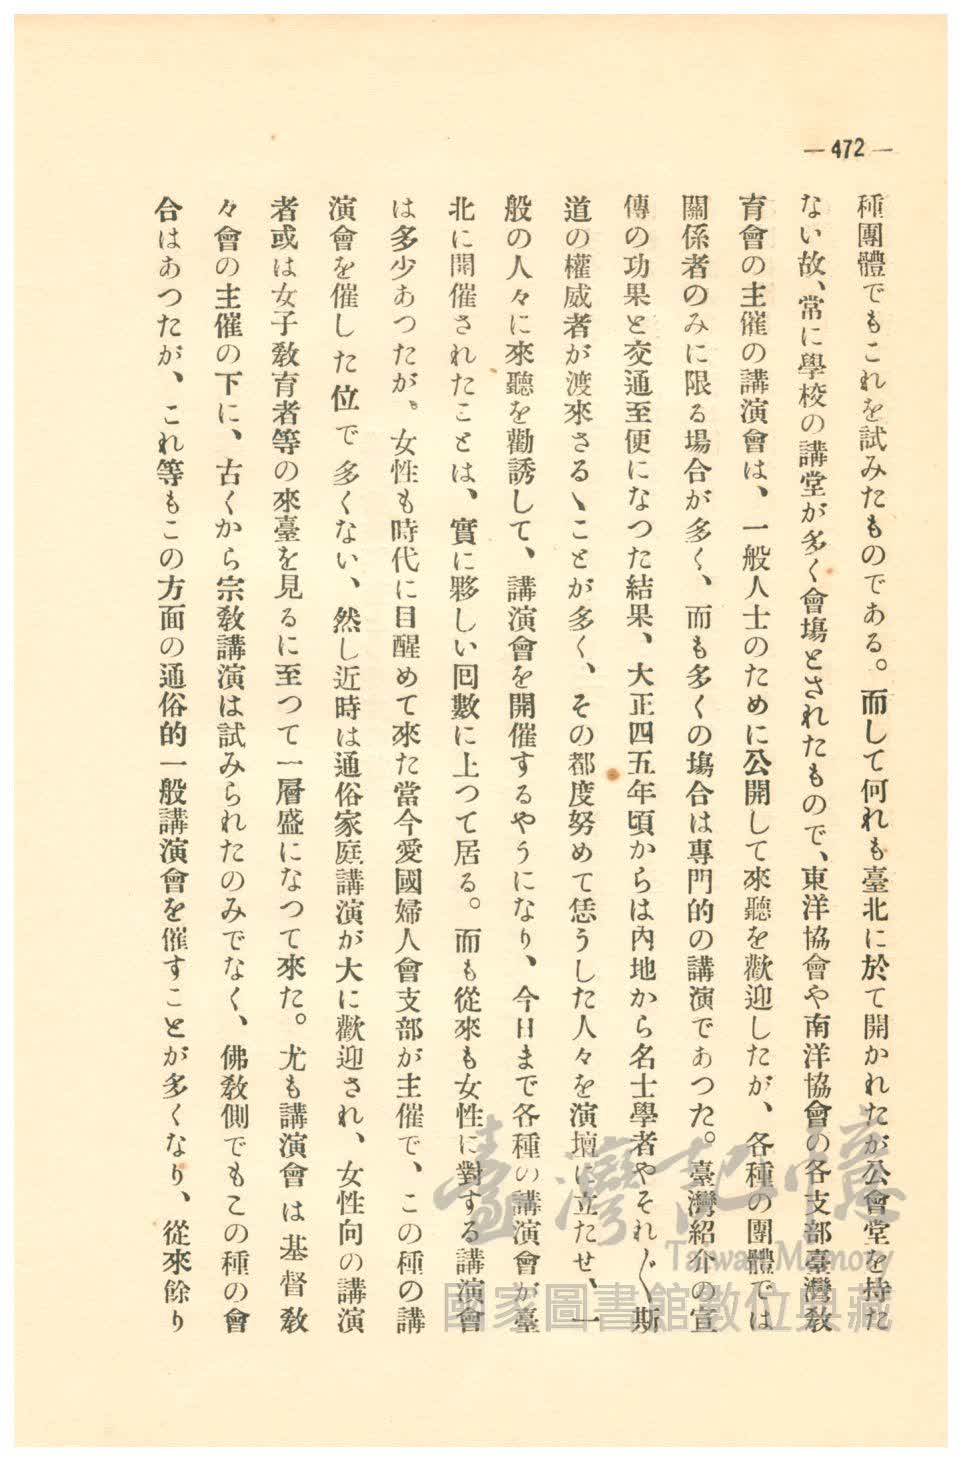 —472—
種團體でもこれを試みたものである。而して何れも臺北に於て開かれたが公會堂を持た
ない故、常に學校の講堂が多く會場とされたもので、東洋協會や南洋協會の各支部臺灣敎
育會の主催の講演會は、一般人士のために公開して來聽を歡迎したが、各種の團體では
關係者のみに限る場合が多く、而も多くの塲合は專門的の講演であつた。臺灣紹介の宣
傳の功果と交通至便になつた結果、大正四五年頃からは內地から名士學者やそれ〴〵斯
道の權威者が渡來さるゝことが多く、その都度努めて恁うした人々を演壇に立たせ、一
般の人々に來聽を勸誘して、講演會を開催するやうになり、今日まで各種の講演會が臺
北に開催されたことは、實に夥しい回數に上つて居る。而も從來も女性に對する講演會
は多少あつたが、女性も時代に目醒めて來た當今愛國婦人會支部が主催で、この種の講
演會を催した位で多くない、然し近時は通俗家庭講演が大に歡迎され、女性向の講演
者或は女子敎育者等の來臺を見るに至つて一層盛になつて來た。尤も講演會は基督敎
々會の主催の下に、古くから宗敎講演は試みられたのみでなく、佛敎側でもこの種の會
合はあつたが、これ等もこの方面の通俗的一般講演會を催すことが多くなり、從來餘り
臺灣記憶
Taiwan Memory
國家圖書館數位典藏